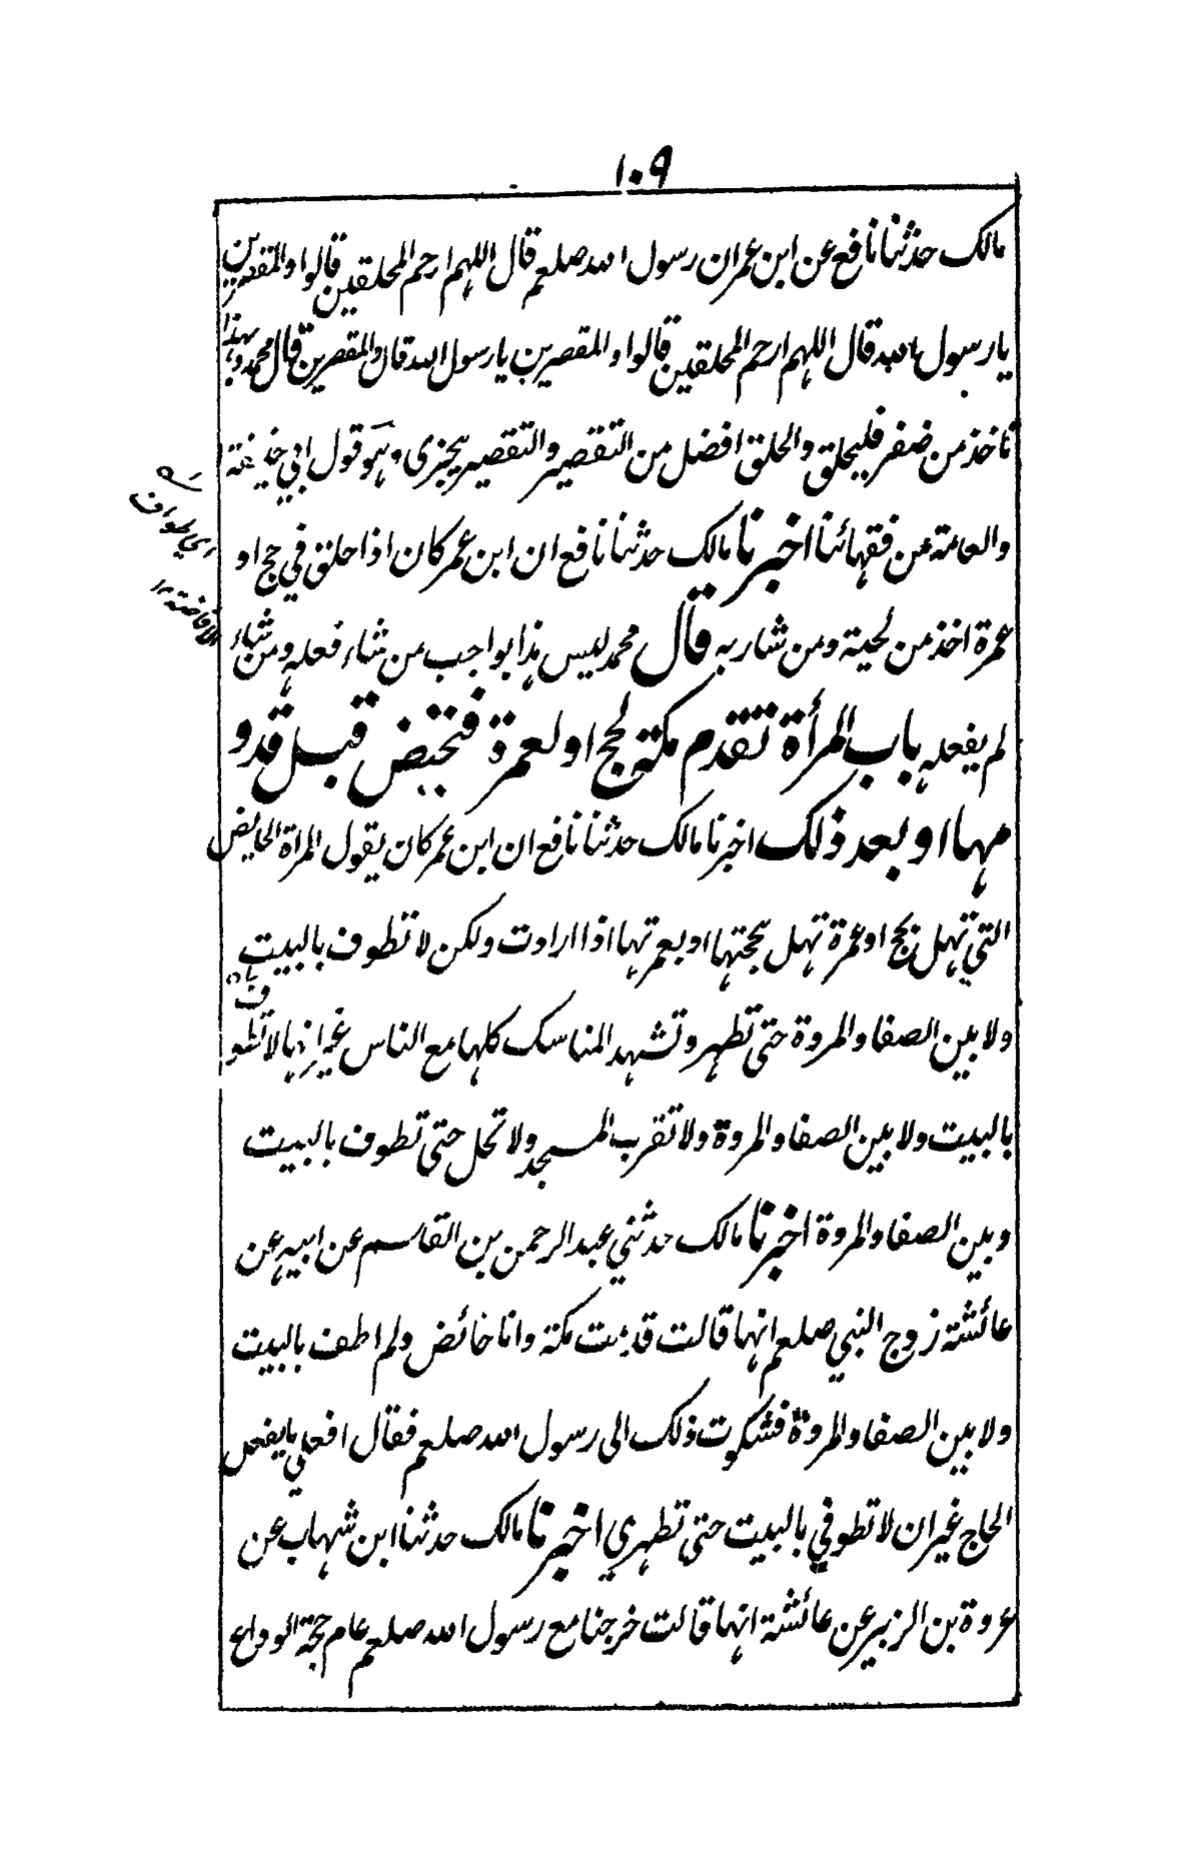 ١٠٩
مالك حدثنا نافع عن ابن عمر ان رسول الله صلعم قال اللهم ارحم المحلقين قالوا والمقصرين
يا رسول الله قال اللهم ارحم المحلقين قالوا والمقصرين يا رسول الله قال والمقصرين قال محمد وبهذا
ناخذ من ضفر فليحلق والحلق افضل من التقصير والتقصير يجزى وهو قول ابي حنيفة
والعامة من فقهائنا اخبرنا مالك حدثنا نافع ان ابن عمر كان اذا حلق في حج او
عمرة اخذ من لحية ومن شاربه قال محمد ليس هذا بواجب من شاء فعله ومن شاء
لم يفعله باب المرأة تقدم مكة لحج او لعمرة فتحيض قبل قدو
مها او بعد ذلك اخبرنا مالك حدثنا نافع ان ابن عمر كان يقول المراة الحايض
التي تهل بحج او عمرة تهل بحجتها او بعمرتها اذا ارادت ولكن لا تطوف بالبيت
ولا بين الصفا والمروة حتى تطهر وتشهد المناسك كلها مع الناس غير انها لا تطوف
بالبيت ولا بين الصفا والمروة ولا تقرب المسجد ولا تحل حتى تطوف بالبيت
وبين الصفا والمروة اخبرنا مالك حدثني عبد الرحمن بن القاسم عن ابيه عن
عائشة زوج النبي صلعم انها قالت قدمت مكة وانا حائض ولم اطف بالبيت
ولا بين الصفا والمروة فشكوت ذلك الى رسول الله صلعم فقال افعلي ما يفعل
الحاج غير ان لا تطوفي بالبيت حتى تطهري اخبرنا مالك حدثنا ابن شهاب عن
عروة بن الزبير عن عائشة انها قالت خرجنا مع رسول الله صلعم عام حجة الوداع
اي طواف
الافاضة ١٢